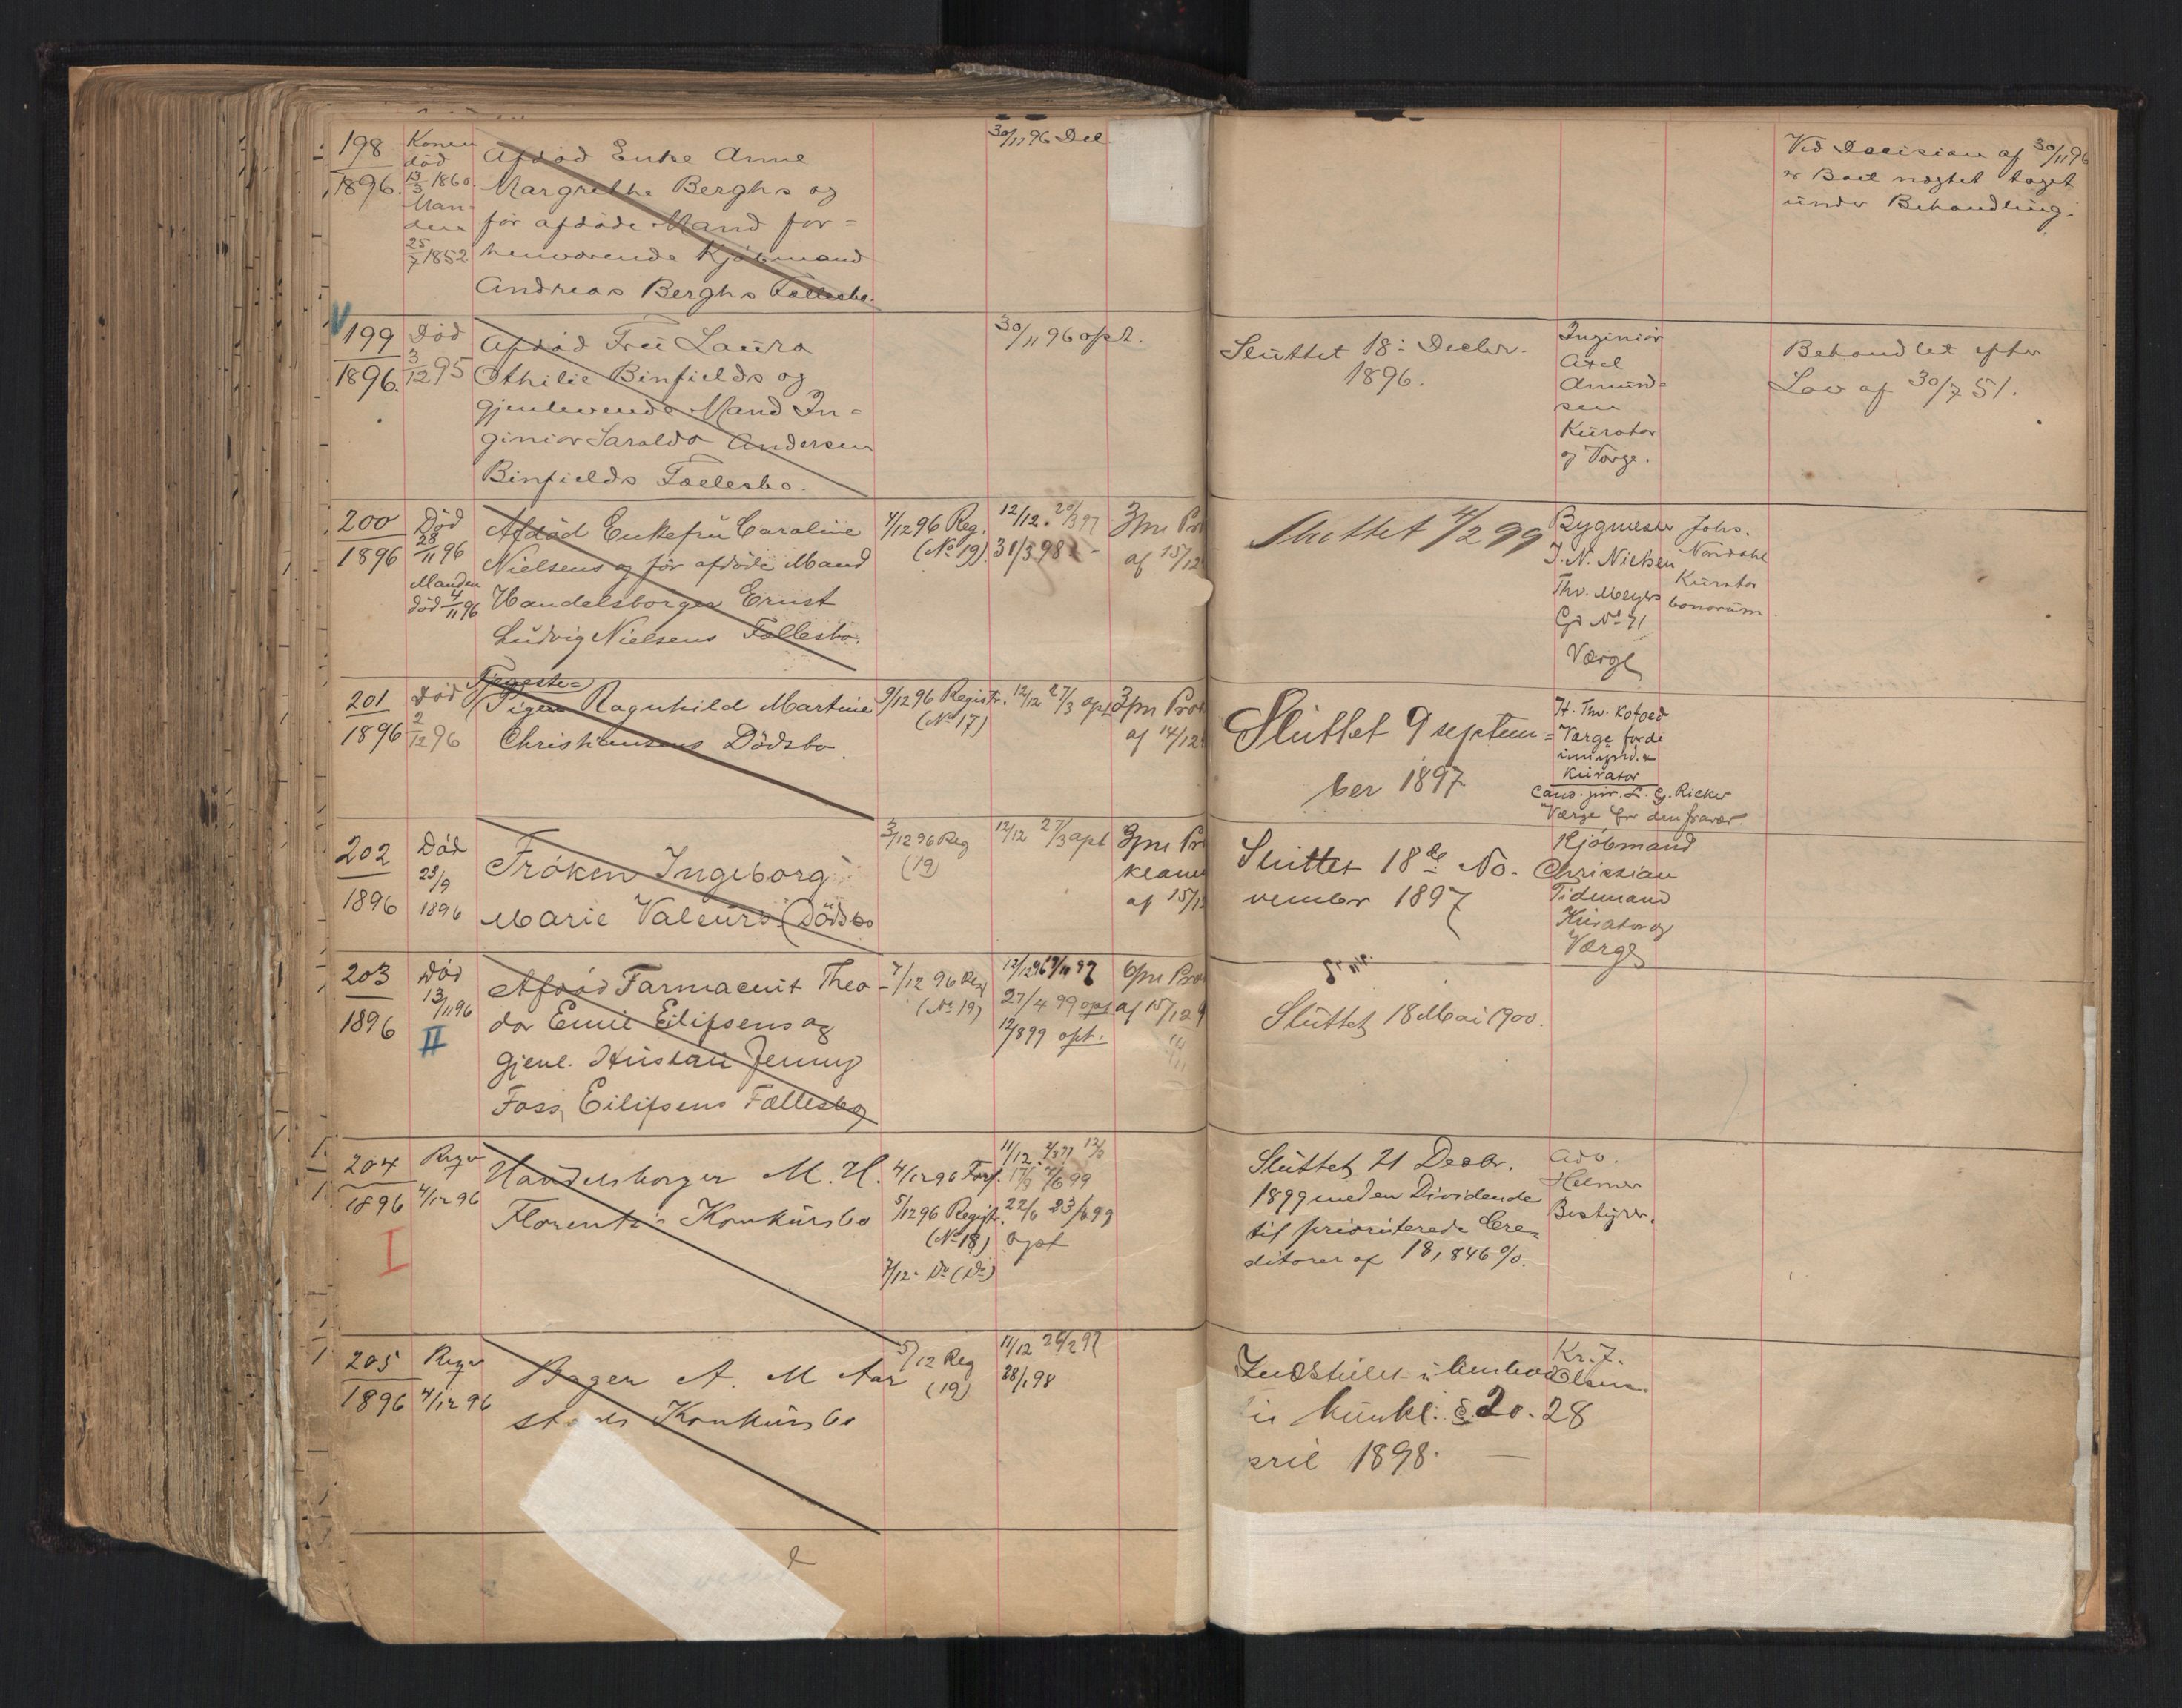 198
1896.
Konen
død
13/3 1860.
Man-
den
25/7 1852
Afdød Enke Anne
Margrethe Berghs og
før afdøde Mand for=
henværende Kjøbmand
Andreas Berghs Fællesbo.
30/11 96 Del
Ved Decision af 30/11 96
er Boet nægtet taget
under Behandling.
199
1896.
Død
3/12 95
Afdød Frü Laüra
Othilie Binfields og
gjenlevende Mand In=
geniør Andersen
Binfields Fællesbo.
30/11 96 opt.
Slüttet 18: Decbr.
1896.
Ingeniør
Axel
Amünd=
sen
Kürator
og Værge.
Behandlet efter
Lov af 30/7 51.
200
1896
Død
28/11 96
Manden
død 4/11 96
Afdød Enkefrü Caroline
Nielsens og før afdøde Mand
Handelsborger Ernst
Lüdvig Nielsens Fællesbo.
4/12 96 Reg.
(No 19)
12/12.
31/3 98
3/m Pro
af 15/12
Slüttet 4/2 99
Bygmester
J. N. Nielsen
Thv. Meyers
Gd No 71
Værge
Johs.
Nordahl
Kürator
bonorüm.
201
1896
Død
2/12 96
Tjeneste=
Pigen Ragnhild Martine
Christiansens Dødsbo.
9/12 96 Registr.
(No 17)
12/12 27/3 opt
3/m Prok
af 14/12
Slüttet 9 septem=
ber 1897
H. Thv. Kofoed
Værge for de
ümynd. &
Kürator
Cand. jür. L. G. Ricker
Værge for den fravær.
202
1896
Død
23/9
1896
Frøken Ingeborg
Marie Valeürs Dødsbo
3/12 96 Reg
(19)
12/12 27/3 opt
3/m Pr
klam
af 15/12
Slüttet 18de No-
vember 1897
Kjøbmand
Christian
Tidemand
Kürator og
Værge
203
1896
Død
13/11 96
II
Afdød Farmaceüt Theo
dor Emil Eilifsens og
gjenl. Hüstrü Jenny
Foss Eilifsens Fællesbo
7/12 96 Reg
(No 19)
27/4 99 opt
12/8 99 opt.
6/m Pro
af 15/12 9
Slüttet 18 Mai 1900.
204
1896
Begr
4/12 96
I
Handelsborger M. H.
Florentz's Konkürsbo
4/12 96 Forf.
5/12 96 Registr.
(No 18)
7/12 - Do (Do)
11/12.
22/6 23/6 99
opt
Slüttet 21 Decbr.
1899 med en Dividende
til prioriterede Cre=
ditorer af 18,846 %.
Adv.
Helmer
Bestyrer.
205
1896
Begr
4/12 96
Bager A. M Aar
stads Konkürsbo
5/12 Reg
(19)
11/12 26/2 97
28/1 98
Indstillet i Henhold
Kr. 7.
Olsen.
Künkl. § 20. 28
pril 1898.